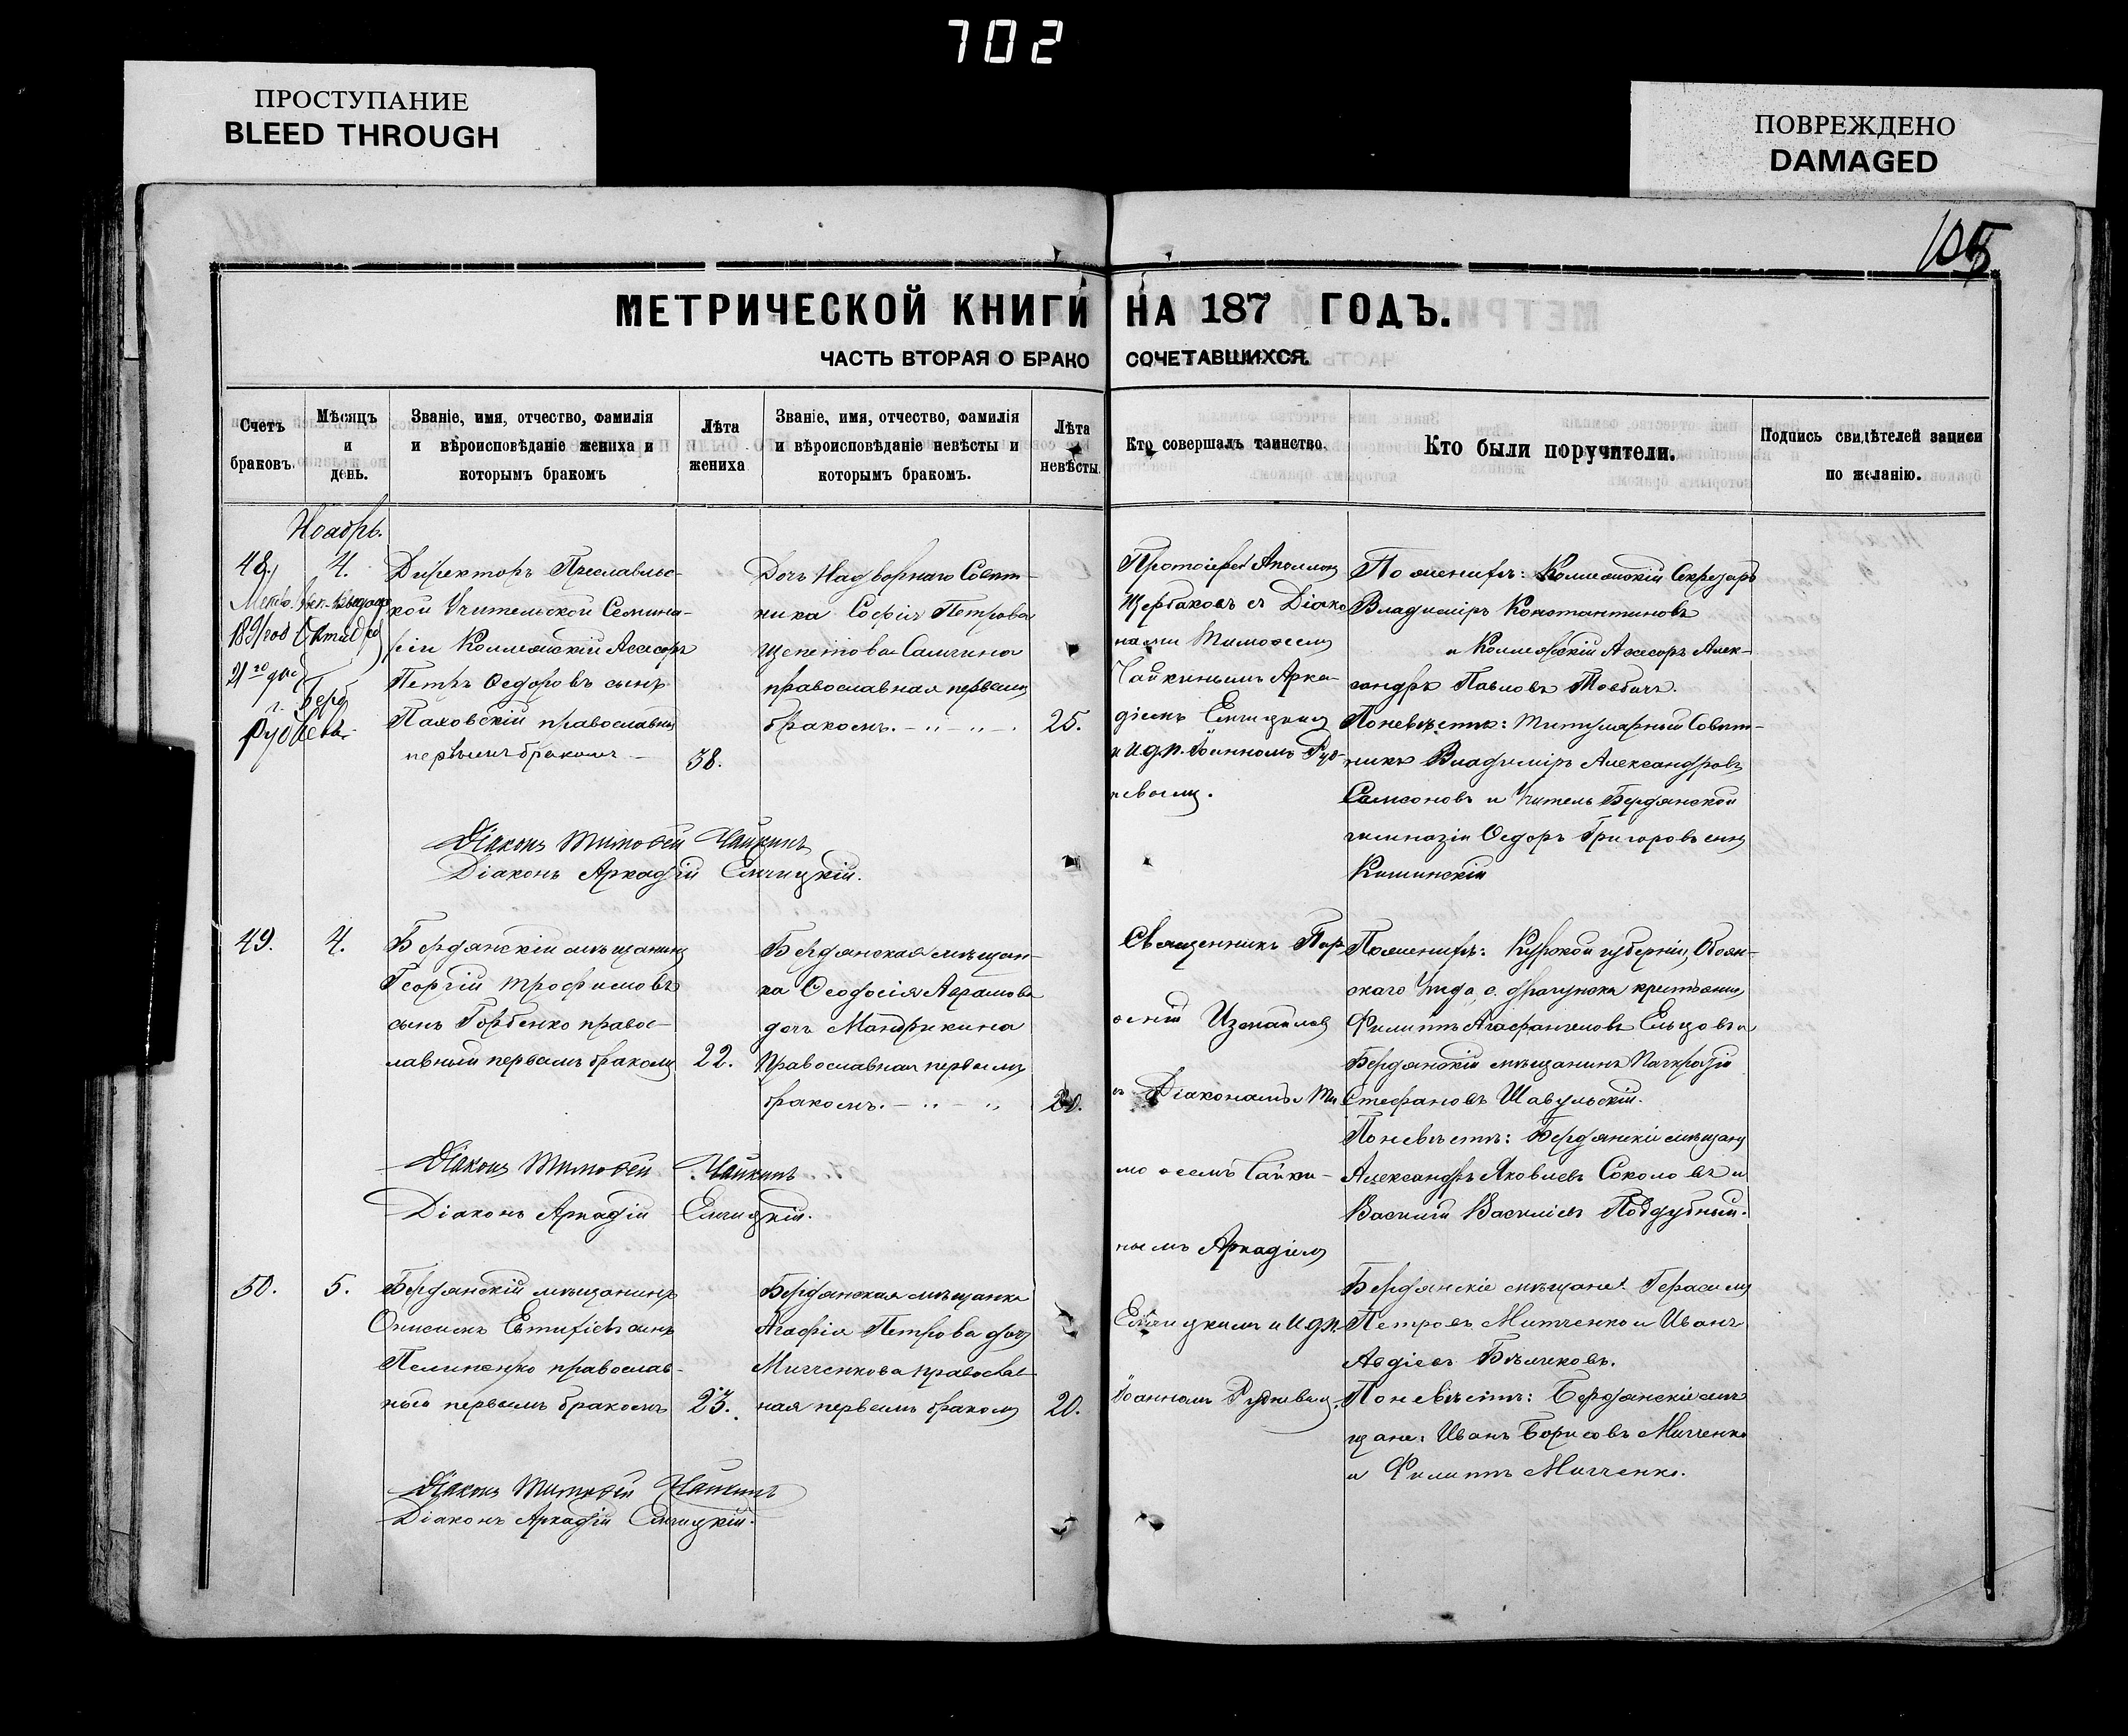 702
ПРОСТУПАНИЕ
BLEED THROUGH
ПОВРЕЖДЕНО
DAMAGED
105
МЕТРИЧЕСКОЙ КНИГИ НА 187 ГОДЪ.
ЧАСТЬ ВТОРАЯ О БРАКОСОЧЕТАВШИХСЯ.
Счетъ
браковъ.
Мѣсяцъ
и
день.
Званіе, имя, отчество, фамилія
и вѣроисповѣданіе жениха и
которымъ бракомъ
Лѣта
жениха
Званіе, имя, отчество, фамилія
и вѣроисповѣданіе невѣсты и
которымъ бракомъ.
Лѣта
невѣсты.
Кто совершалъ таинство.
Кто были поручители.
Подпись свидѣтелей записи
по желанію.
Ноябрь.
48.
4.
Директоръ
кой Учительской Семина-
ріи Коллежскій Асессоръ
Петръ Ѳедоровъ сынъ
православный
первымъ бракомъ
38.
Дочь Надворнаго Совѣт-
ника Софія Петрова
православная первымъ
бракомъ.
25.
Протоіерей
Щербаковъ съ Діако-
нами Тимоѳеемъ
Чайкинымъ Арка-
діемъ
и И.д.п. Іоанномъ Руд-
невымъ.
По женихѣ: Коллежскій Секретарь
Владиміръ Константиновъ
и Коллежскій Асессоръ Алек-
сандръ Павловъ
По невѣстѣ: Титулярный Совѣт-
никъ Владиміръ Александровъ
Самсоновъ и Учитель Бердянской
гимназіи Ѳедоръ Григоровъ сынъ
Діаконъ Тимоѳей Чайкинъ
Діаконъ Аркадій
49.
4.
Бердянскій мѣщанинъ
Георгій Трофимовъ
сынъ Горбенко правос-
лавный первымъ бракомъ
22.
Бердянская мѣщан-
ка Ѳеодосія Абрамова
дочь Мандрикина
православная первымъ
бракомъ.
20.
Священникъ Пар-
ѳеній Измаиловъ
съ Діаконами Ти-
моѳеемъ Чайки-
нымъ Аркадіемъ
и И.д.п.
Іоанномъ Рудневымъ.
По женихѣ: Курской губерніи, Обоян-
скаго Уѣзда, с.
Филиппъ Агафангеловъ Ельцовъ и
Бердянскій мѣщанинъ Панкратій
Стефановъ Шавульскій.
По невѣстѣ: Бердянскіе мѣщане
Александръ Яковлевъ Соколовъ и
Василій Васильевъ Поддубный.
Діаконъ Тимоѳей Чайкинъ
Діаконъ Аркадій
50.
5.
Бердянскій мѣщанинъ
Онисимъ Евтихіевъ сынъ
Пелипенко православ-
ный первымъ бракомъ
23.
Бердянская мѣщанка
Агафія Петрова дочь
Митченкова православ-
ная первымъ бракомъ
20.
Бердянскіе мѣщане: Герасимъ
Петровъ Митченко и Иванъ
Авдіевъ Бѣличковъ.
По невѣстѣ: Бердянскіе мѣ-
щане: Иванъ Борисовъ Митченко
и Филиппъ Митченко.
Діаконъ Тимоѳей Чайкинъ
Діаконъ Аркадій